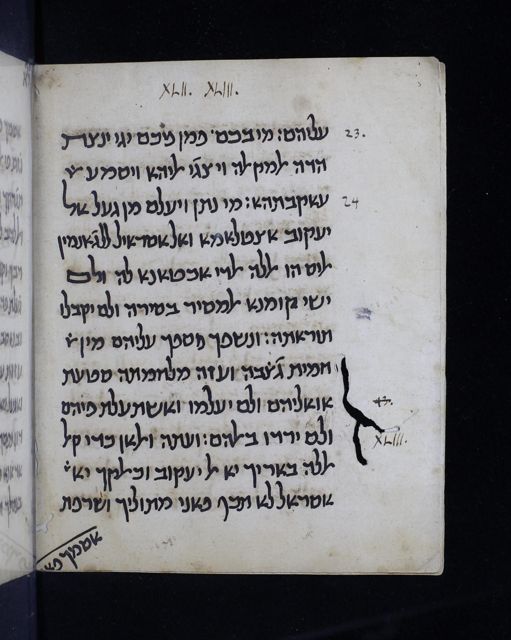 XLII. XLIII.
עליהם: מי בכם׃ פמן מכם יגי ינצת 23.
הדה למקלה ויצגי ליהא ויסמע
עאקבתהא: מי נתן ויעלם מן געל אל 24
יעקוב אצטלאמא ואל אסראיל ללגאנמין
ליס הו ללה לדי אכטאנא לה ולם
ישי קומנא למסיר בסירה ולם יקבלו
תוראתה: ונשפך חספך עליהם מין
חמית גצבה ועזה מלחמתה סטעת
אואליהם ולם יעלמו ואשתעלת פיהם
ולם ירדו בלהם: ועתה ולאן כדי קל XLIII.
ללה באריך יא ל יעקוב וכלקך יא
אסראל לא תכף פאני מתוליך ושרפת
אסמך פא